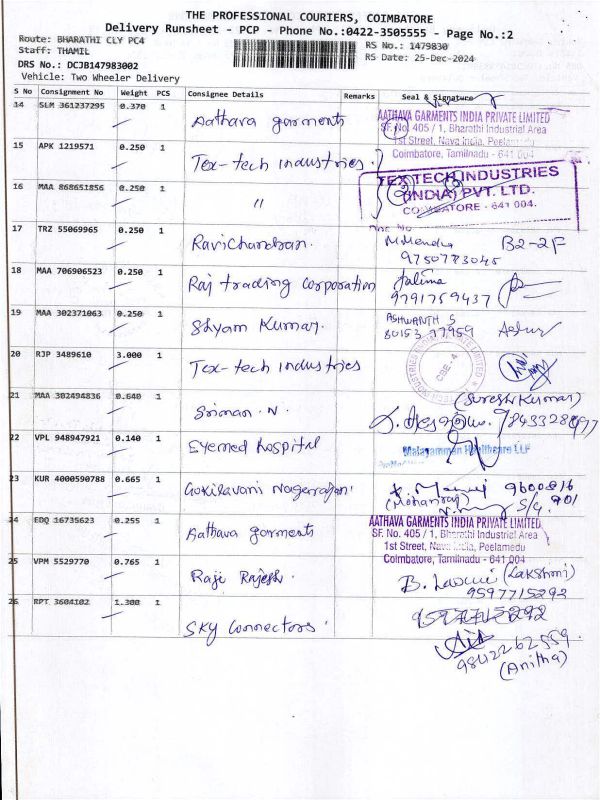 THE PROFESSIONAL COURIERS, COIMBATORE
Delivery Runsheet - PCP - Phone No.:0422-3505555 - Page No.:2
Route: BHARATHI CLY PC4
Staff: THAMIL
RS No.: 1479830
RS Date: 25-Dec-2024
DRS No.: DCJB147983002
Vehicle: Two Wheeler Delivery
S No Consignment No Weight PCS Consignee Details Remarks Seal & Signature
14 SLM 361237295 0.370 1
Aathava garments
AATHAVA GARMENTS INDIA PRIVATE LIMITED
SF. No. 405 / 1, Bharathi Industrial Area
1st Street, Nava India, Peelamedu
Coimbatore, Tamilnadu - 641 004
15 APK 1219571 0.250 1
Tex-tech industries
16 MAA 868651856 0.250 1
"
TEX TECH INDUSTRIES
(INDIA) PVT. LTD.
COIMBATORE - 641 004.
17 TRZ 55069965 0.250 1
Ravichandran.
M.Mendra B2-2F
9750773045
18 MAA 706906523 0.250 1
Raj trading corporation
9791759437
19 MAA 302371063 0.250 1
Shyam Kumar.
ASHWANTH S
80153 77959
20 RJP 3489610 3.000 1
Tex-tech industries
CBE-4
21 MAA 302494836 0.640 1
Sriman. N.
(Suresh Kumar)
22 VPL 948947921 0.140 1
Eyemed hospital
Malaiyamman Healthcare LLP
23 KUR 4000590788 0.665 1
Gokilavani Nagarrajan
(Mohanraj)
24 EDQ 16735623 0.255 1
Aathava garments
AATHAVA GARMENTS INDIA PRIVATE LIMITED
SF. No. 405 / 1, Bharathi Industrial Area
1st Street, Nava India, Peelamedu
Coimbatore, Tamilnadu - 641 004
25 VPM 5529770 0.765 1
Raji Rajesh.
B. Laxmi (Lakshmi)
9597715292
26 RPT 3604102 1.300 1
Sky Connectors
9597715292
9842262559.
(Anitha)